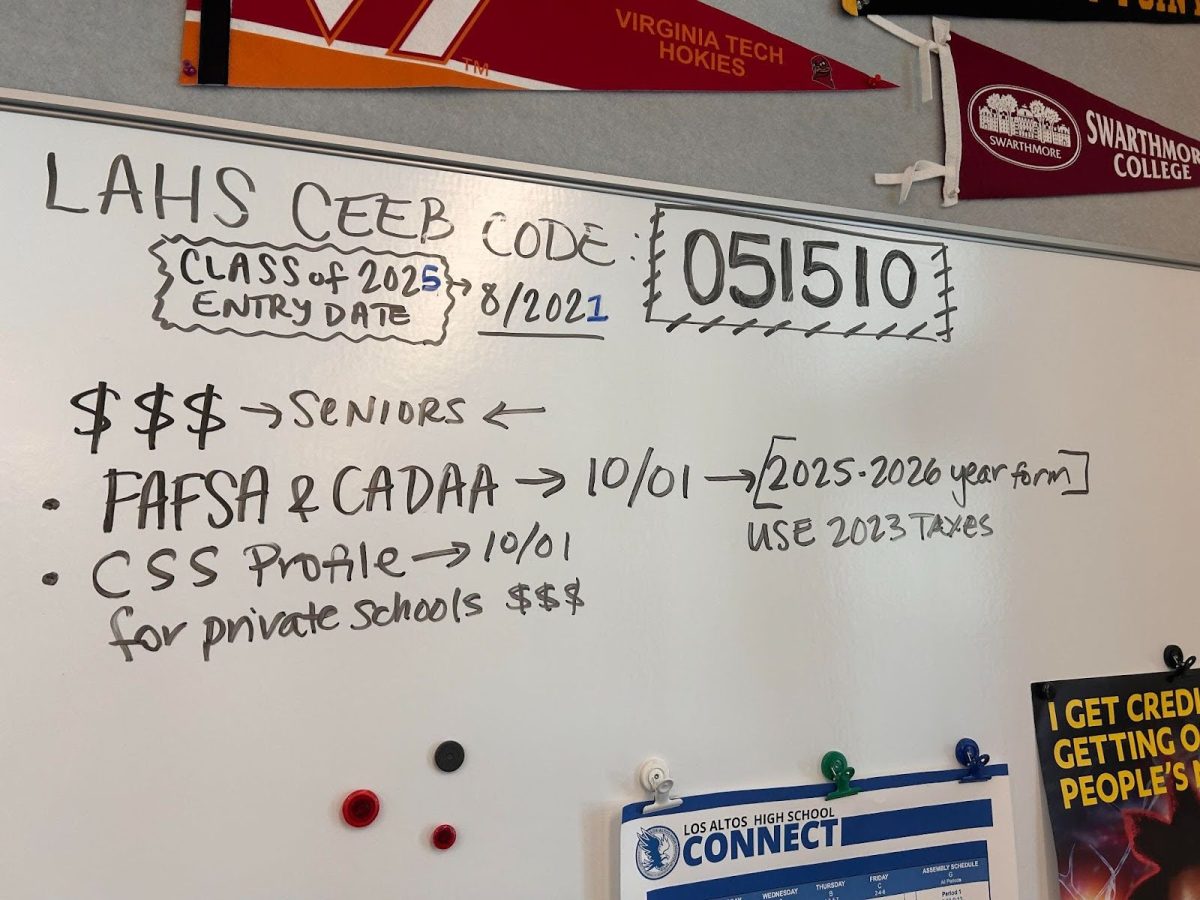 VIRGINIA TECH
HOKIES
TM
SWARTHMORE
SWARTHMORE
COLLEGE
LAHS CEEB CODE: 051510
CLASS of 2025 → 8/2021
ENTRY DATE
$$$ → SENIORS ←
• FAFSA & CADAA → 10/01 → [2025-2026 year form]
USE 2023 TAXES
• CSS Profile → 10/01
for private schools $$$
LOS ALTOS HIGH SCHOOL
CONNECT
WEDNESDAY THURSDAY FRIDAY ASSEMBLY SCHEDULE
B C G
2-4-6 All Periods
Period 1
I GET CREDI
GETTING O
PEOPLE'S